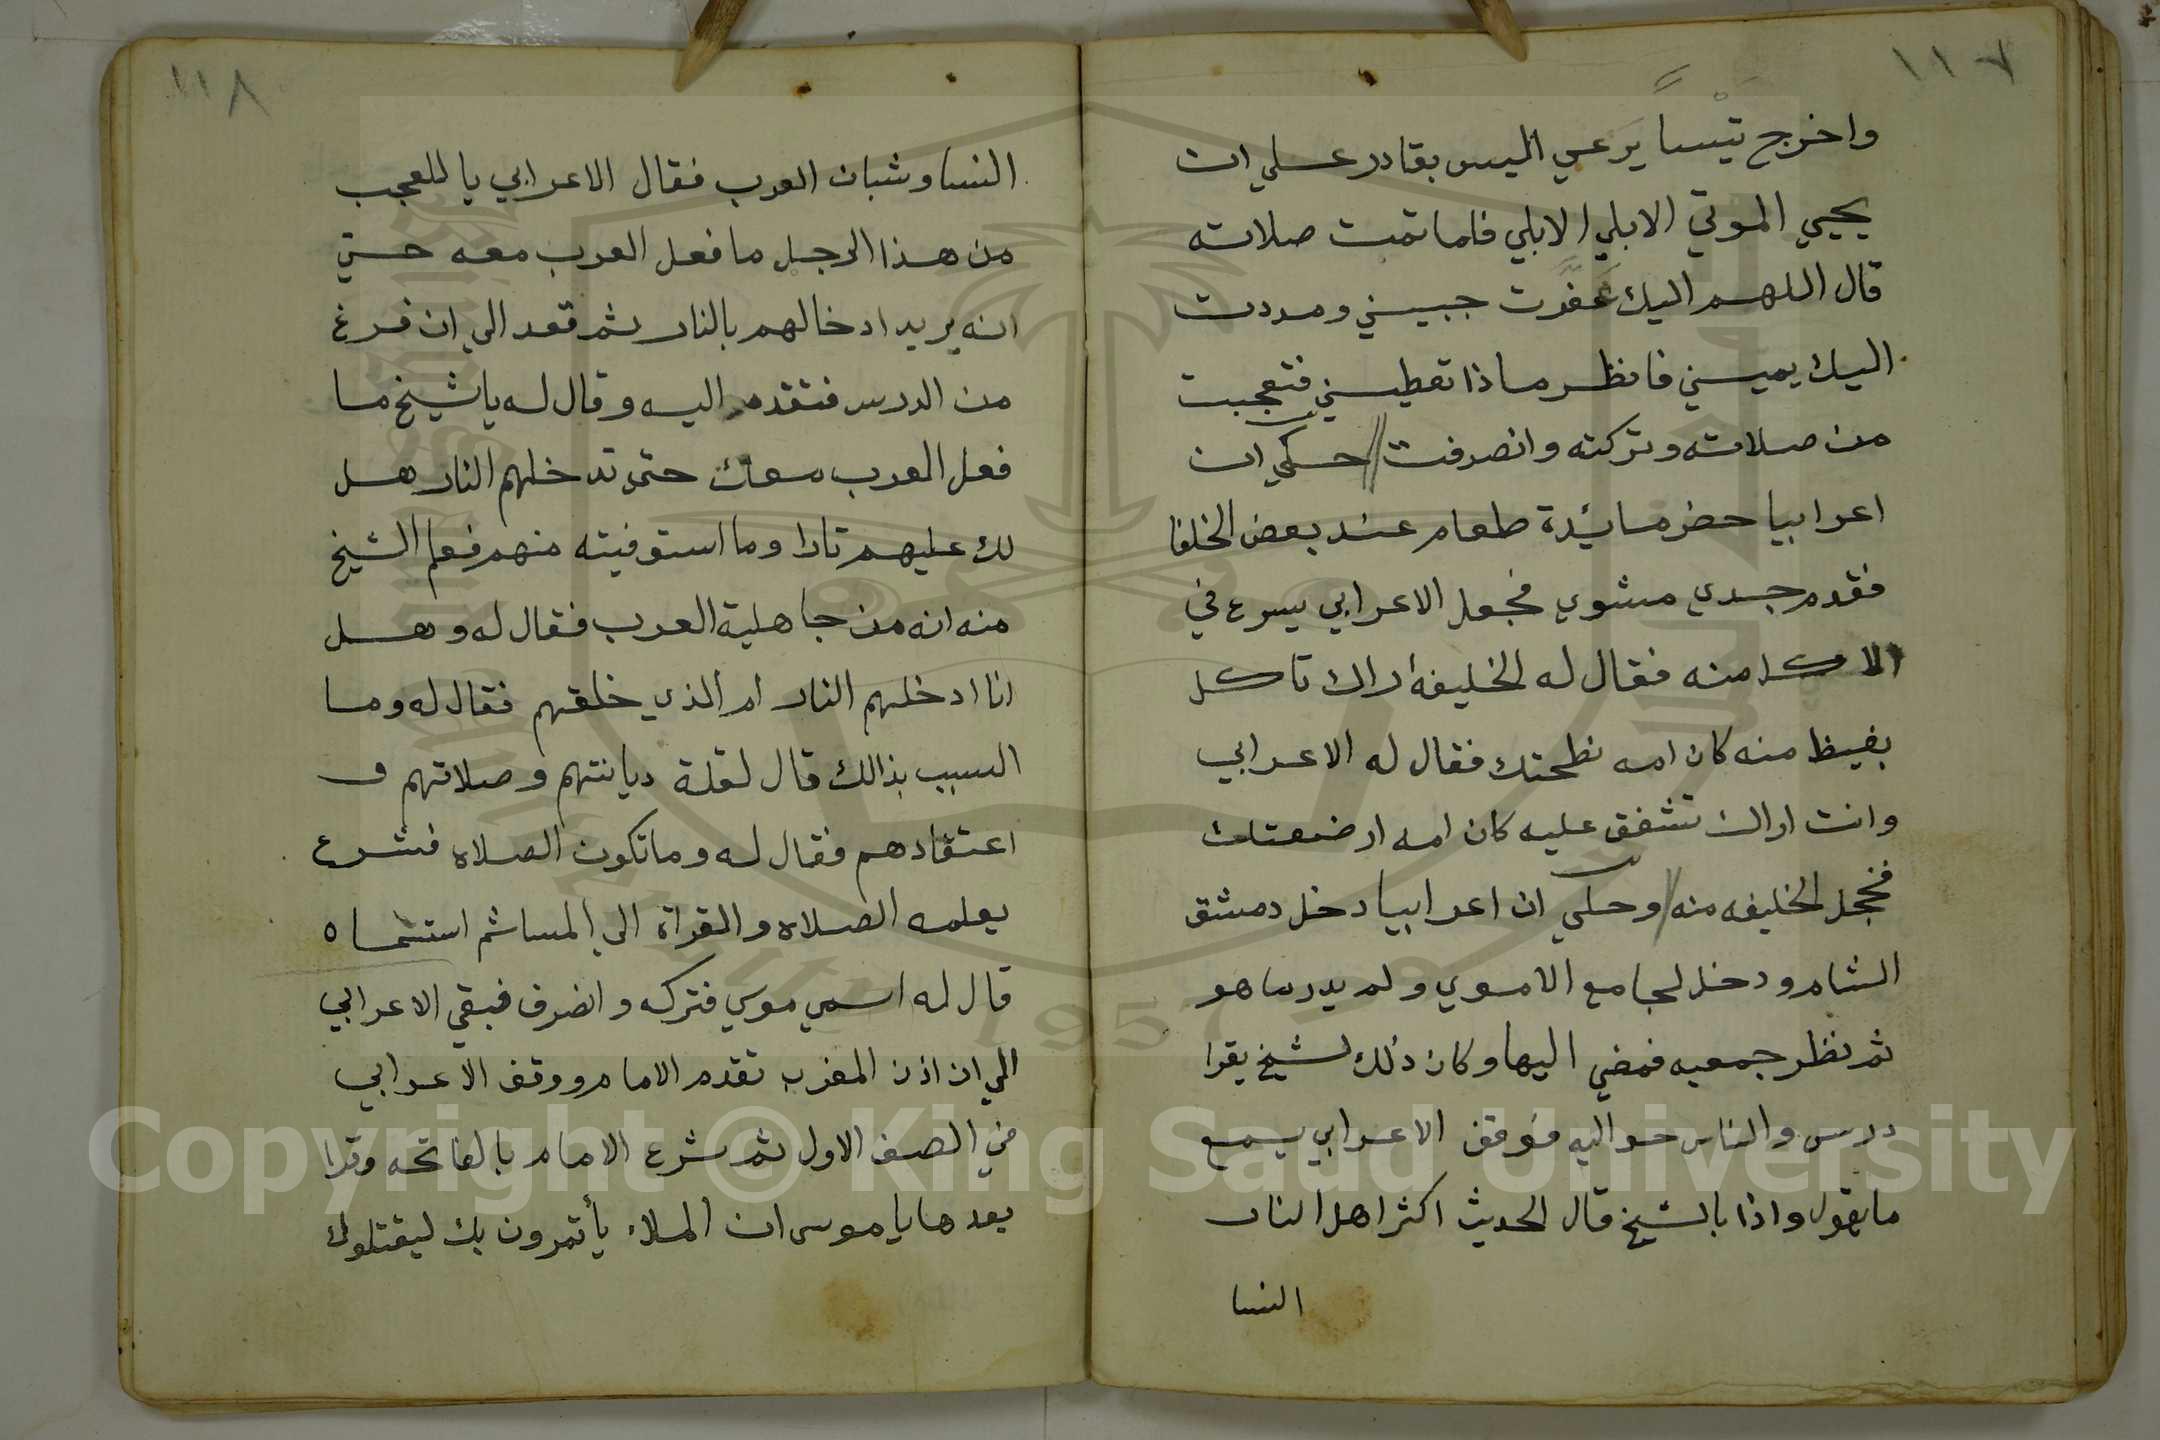 ١١٧
واخرج تَيْساً يَرعي اليس بقادر علي ان
يحيي الموتي الابلي الابلي فلما تمت صلاته
قال اللهم اليك عَفّرت جبيني ومددت
اليك يميني فانظر ماذا تعطيني فتعجبت
من صلاته وتركته وانصرفت // حكي ان
اعرابيا حضر مائدة طعام عند بعض الخلفا
فقدم جدي مشوي فجعل الاعرابي يسرع في
الاكل منه فقال له الخليفه اراك تاكل
بغيظ منه كان امه نطحتك فقال له الاعرابي
وانت اراك تشفق عليه كان امه ارضعتك
فخجل الخليفه منه // وحكي ان اعرابيا دخل دمشق
الشام ودخل لجامع الاموي ولم يدر ما هو
ثم نظر جمعيه فمضي اليها وكان ذلك لشيخ يقرا
درس والناس حواليه فوقف الاعرابي يسمع
ما يقول واذا بالشيخ قال الحديث اكثر اهل النار
النسا
١١٨
النسا وشبان العرب فقال الاعرابي يا للعجب
من هذا الرجل ما فعل العرب معه حتي
انه يريد ادخالهم بالنار ثم قعد الي ان فرغ
من الدرس فتقدم اليه وقال له يا شيخ ما
فعل العرب معك حتى تدخلهم النار هل
لك عليهم تارا وما استوفيته منهم فعلم الشيخ
منه انه من جاهلية العرب فقال له وهل
انا ادخلهم النار ام الذي خلقهم فقال له وما
السبب بذالك قال لقلة ديانتهم وصلاتهم و
اعتقادهم فقال له وما تكون الصلاه فشرع
يعلمه الصلاه والقراة الي المسا ثم استسماه
قال له اسمي موسي فتركه وانصرف فبقي الاعرابي
الي ان اذن المغرب تقدم الامام ووقف الاعرابي
في الصف الاول ثم شرع الامام بالفاتحه وقرا
بعدها يا موسى ان الملاء يأتمرون بك ليقتلوك
Copyright © King Saud University
1957